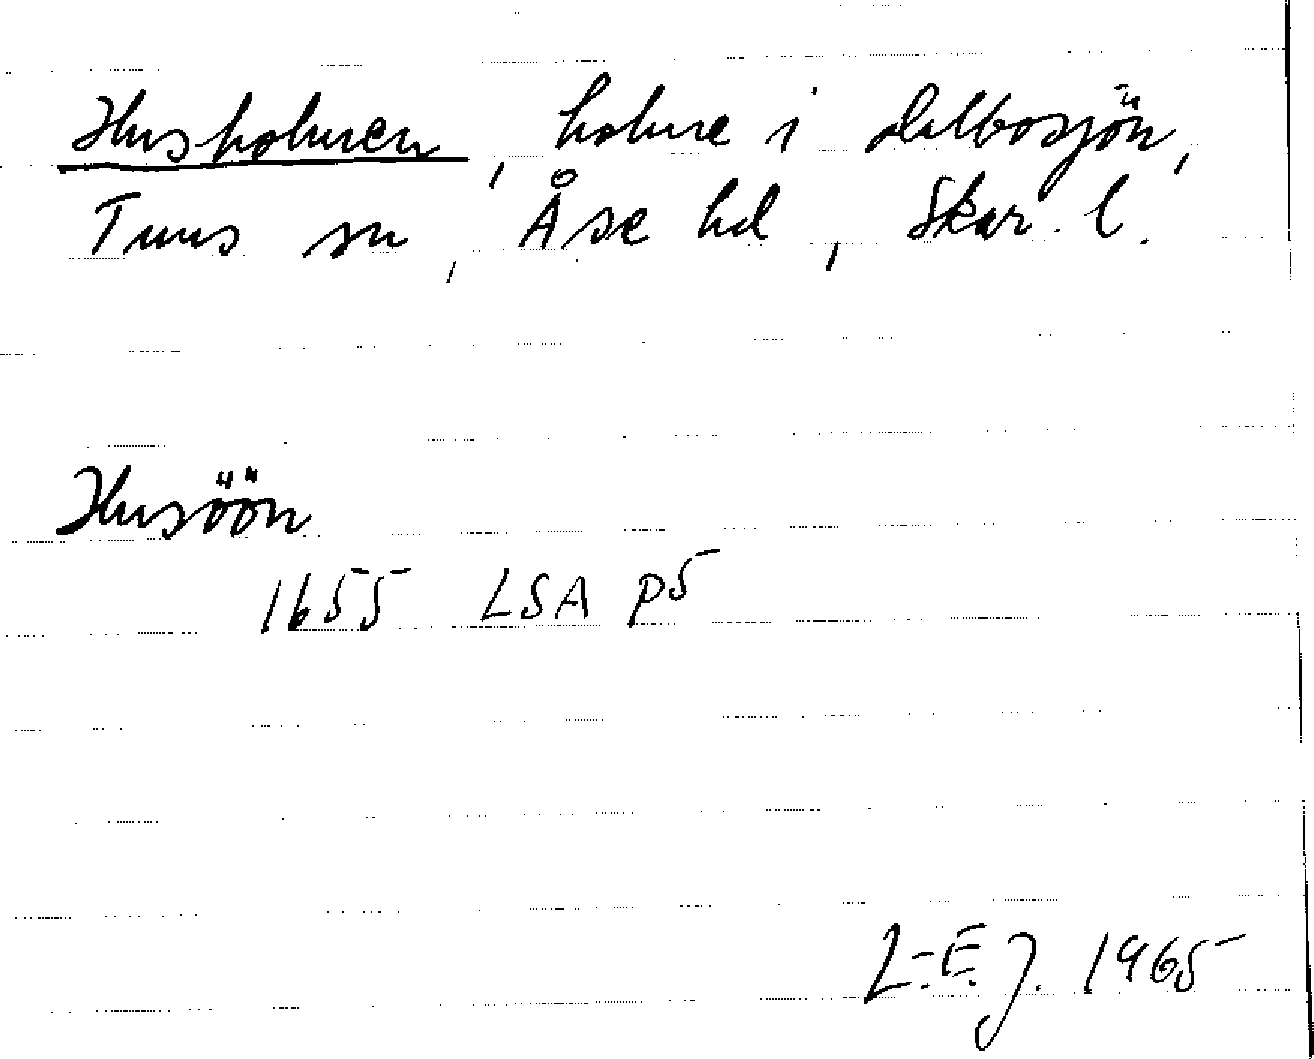 Husholmen, holme i Dalbosjön,
Tuns sn, Åse hd, Skar. l.
Husöön
1655 LSA P5
L-E. J. 1965